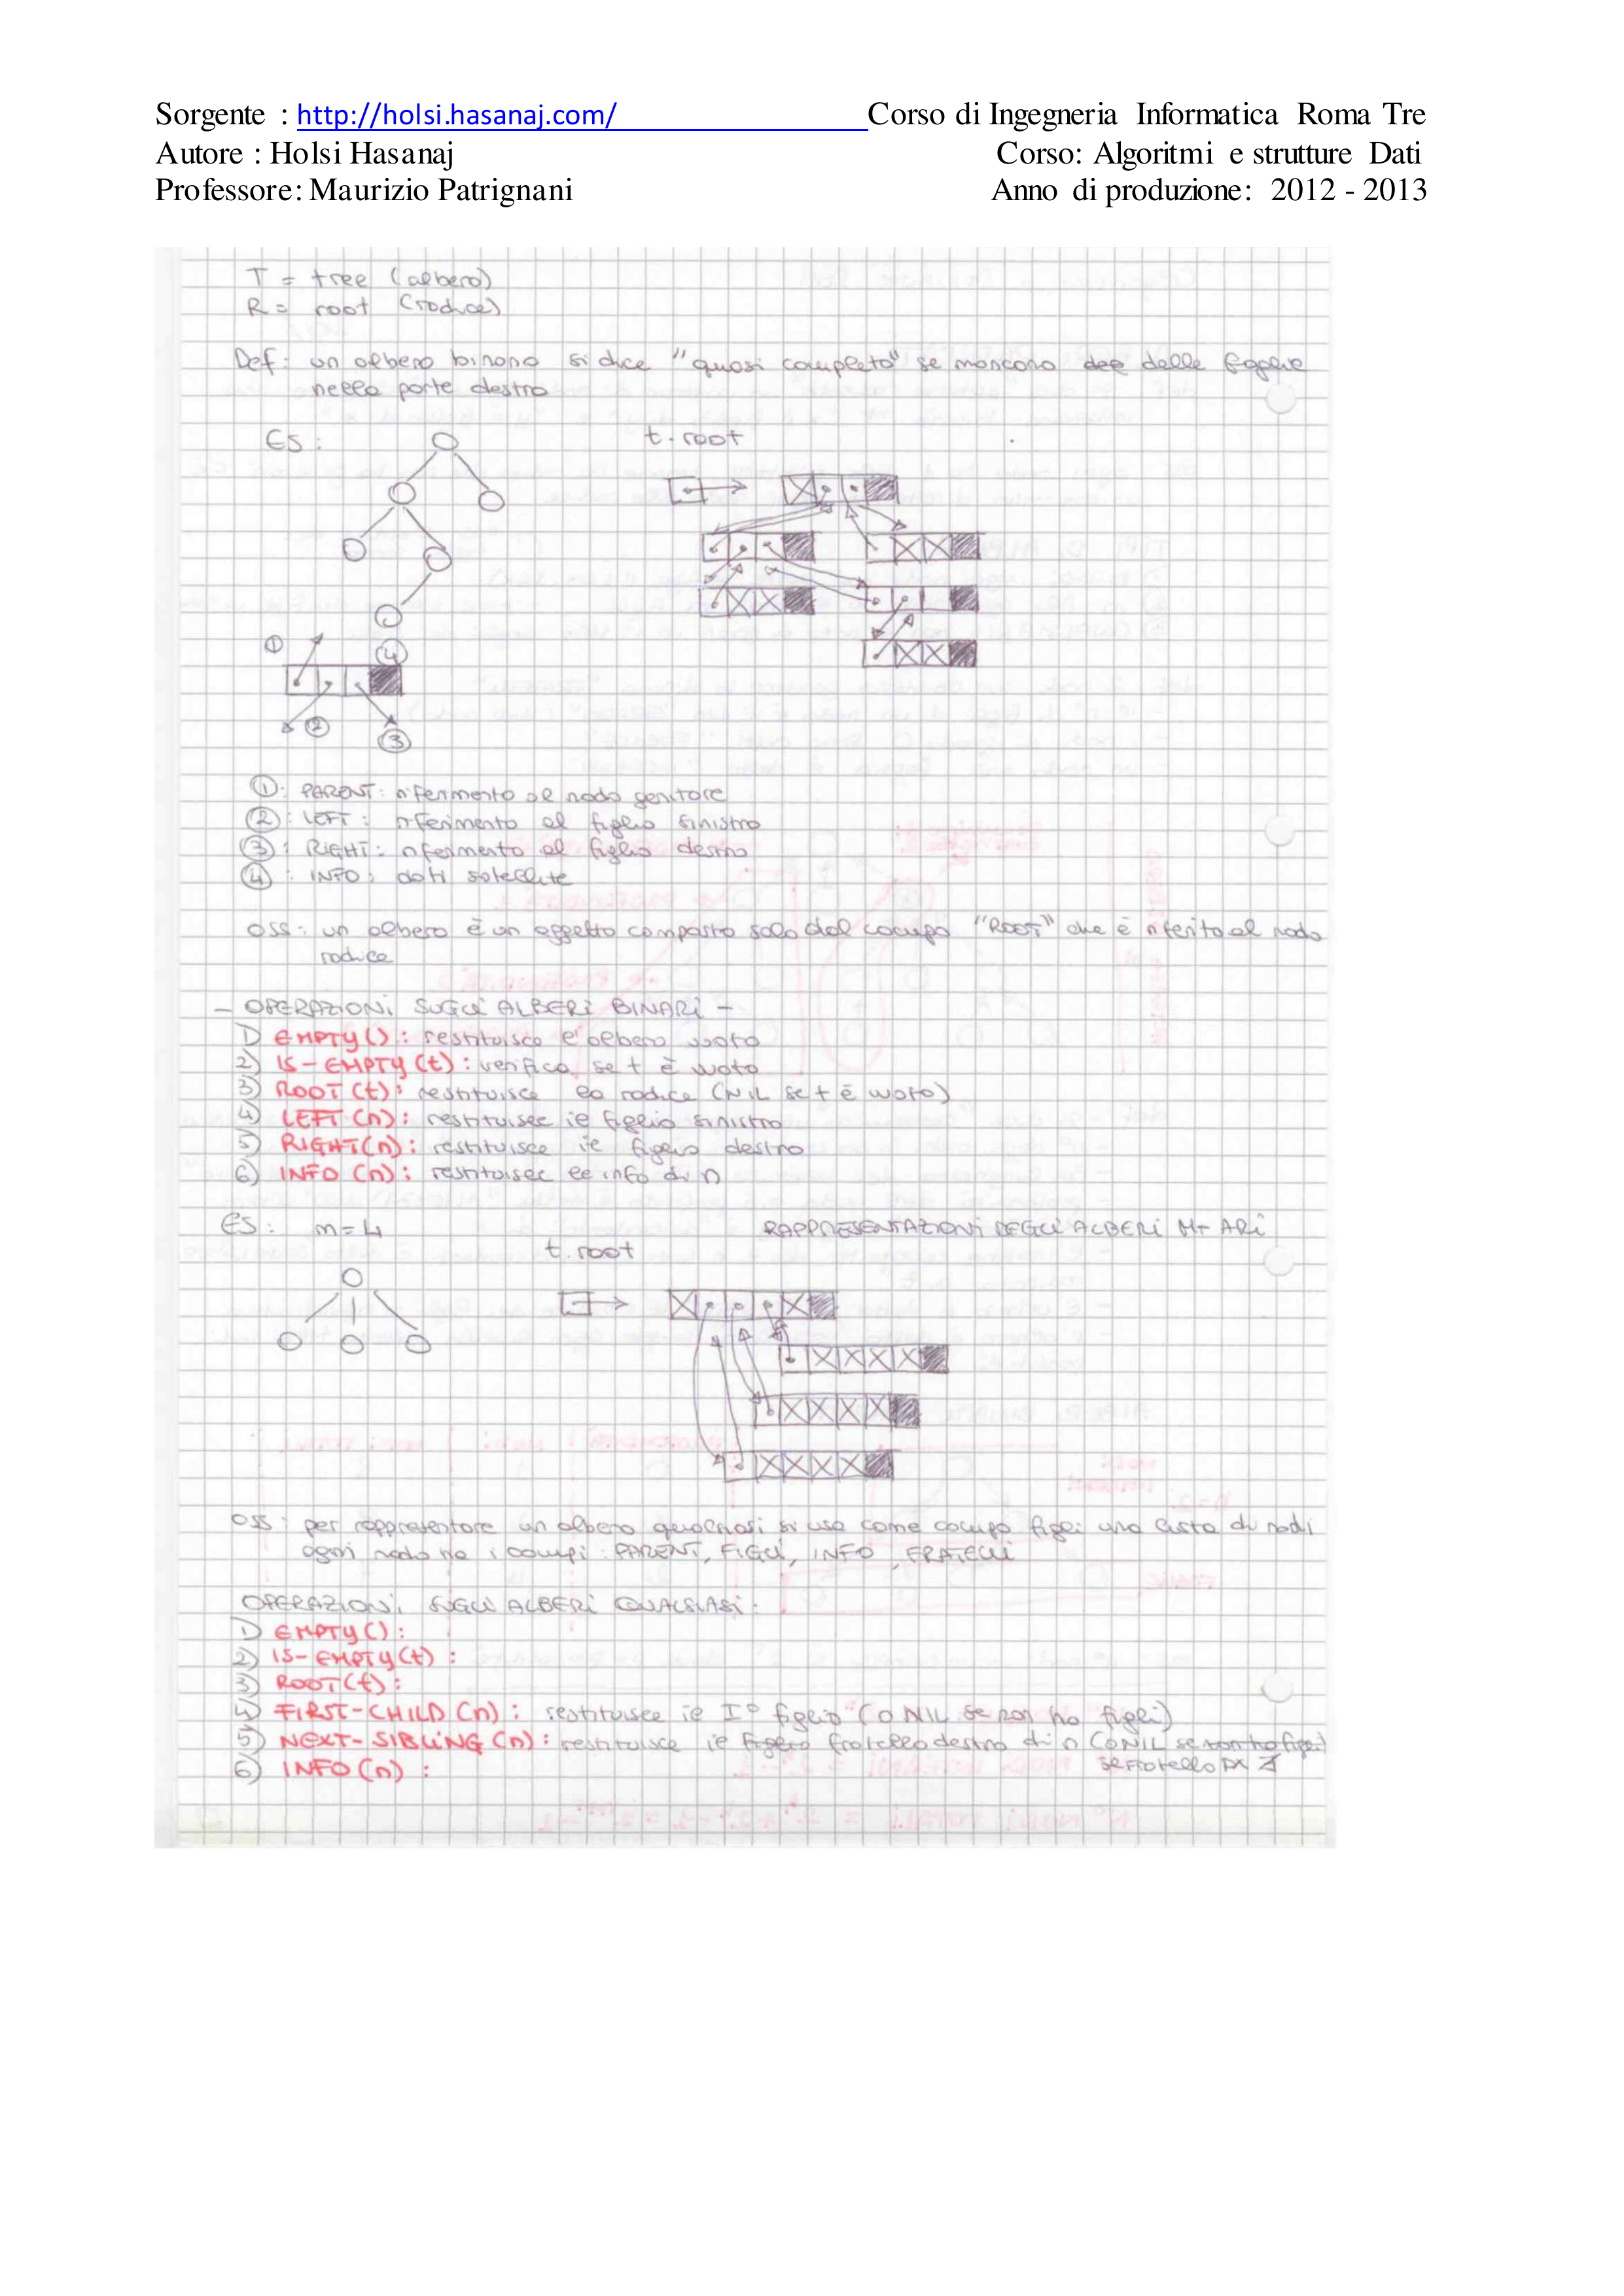 Sorgente : http://holsi.hasanaj.com/ Corso di Ingegneria Informatica Roma Tre
Autore : Holsi Hasanaj Corso: Algoritmi e strutture Dati
Professore: Maurizio Patrignani Anno di produzione: 2012 - 2013
T = tree (albero)
R = root (radice)
Def: un albero binario si dice "quasi completo" se mancano delle foglie
nella parte destra
ES: t.root
①
④
②
③
①: PARENT: riferimento al nodo genitore
②: LEFT: riferimento al figlio sinistro
③: RIGHT: riferimento al figlio destro
④: INFO: dati satellite
OSS: un albero è un oggetto composto solo dal campo "ROOT" che è riferito al nodo
radice
- OPERAZIONI SUGLI ALBERI BINARI -
1) EMPTY(): restituisce l'albero vuoto
2) IS-EMPTY(t): verifica se t è vuoto
3) ROOT(t): restituisce la radice (NIL se t è vuoto)
4) LEFT(n): restituisce il figlio sinistro
5) RIGHT(n): restituisce il figlio destro
6) INFO(n): restituisce le info di n
ES: m=4 RAPPRESENTAZIONI DEGLI ALBERI M-ARI
t.root
OSS: per rappresentare un albero qualsiasi si usa come campo figli una lista di nodi
ogni nodo ha i campi: PARENT, FIGLI, INFO, FRATELLI
OPERAZIONI SUGLI ALBERI QUALSIASI:
1) EMPTY():
2) IS-EMPTY(t):
3) ROOT(t):
4) FIRST-CHILD(n): restituisce il I° figlio (O NIL se non ha figli)
5) NEXT-SIBLING(n): restituisce il figlio fratello destro di n (O NIL se non ha figli)
6) INFO(n): se fratello DX